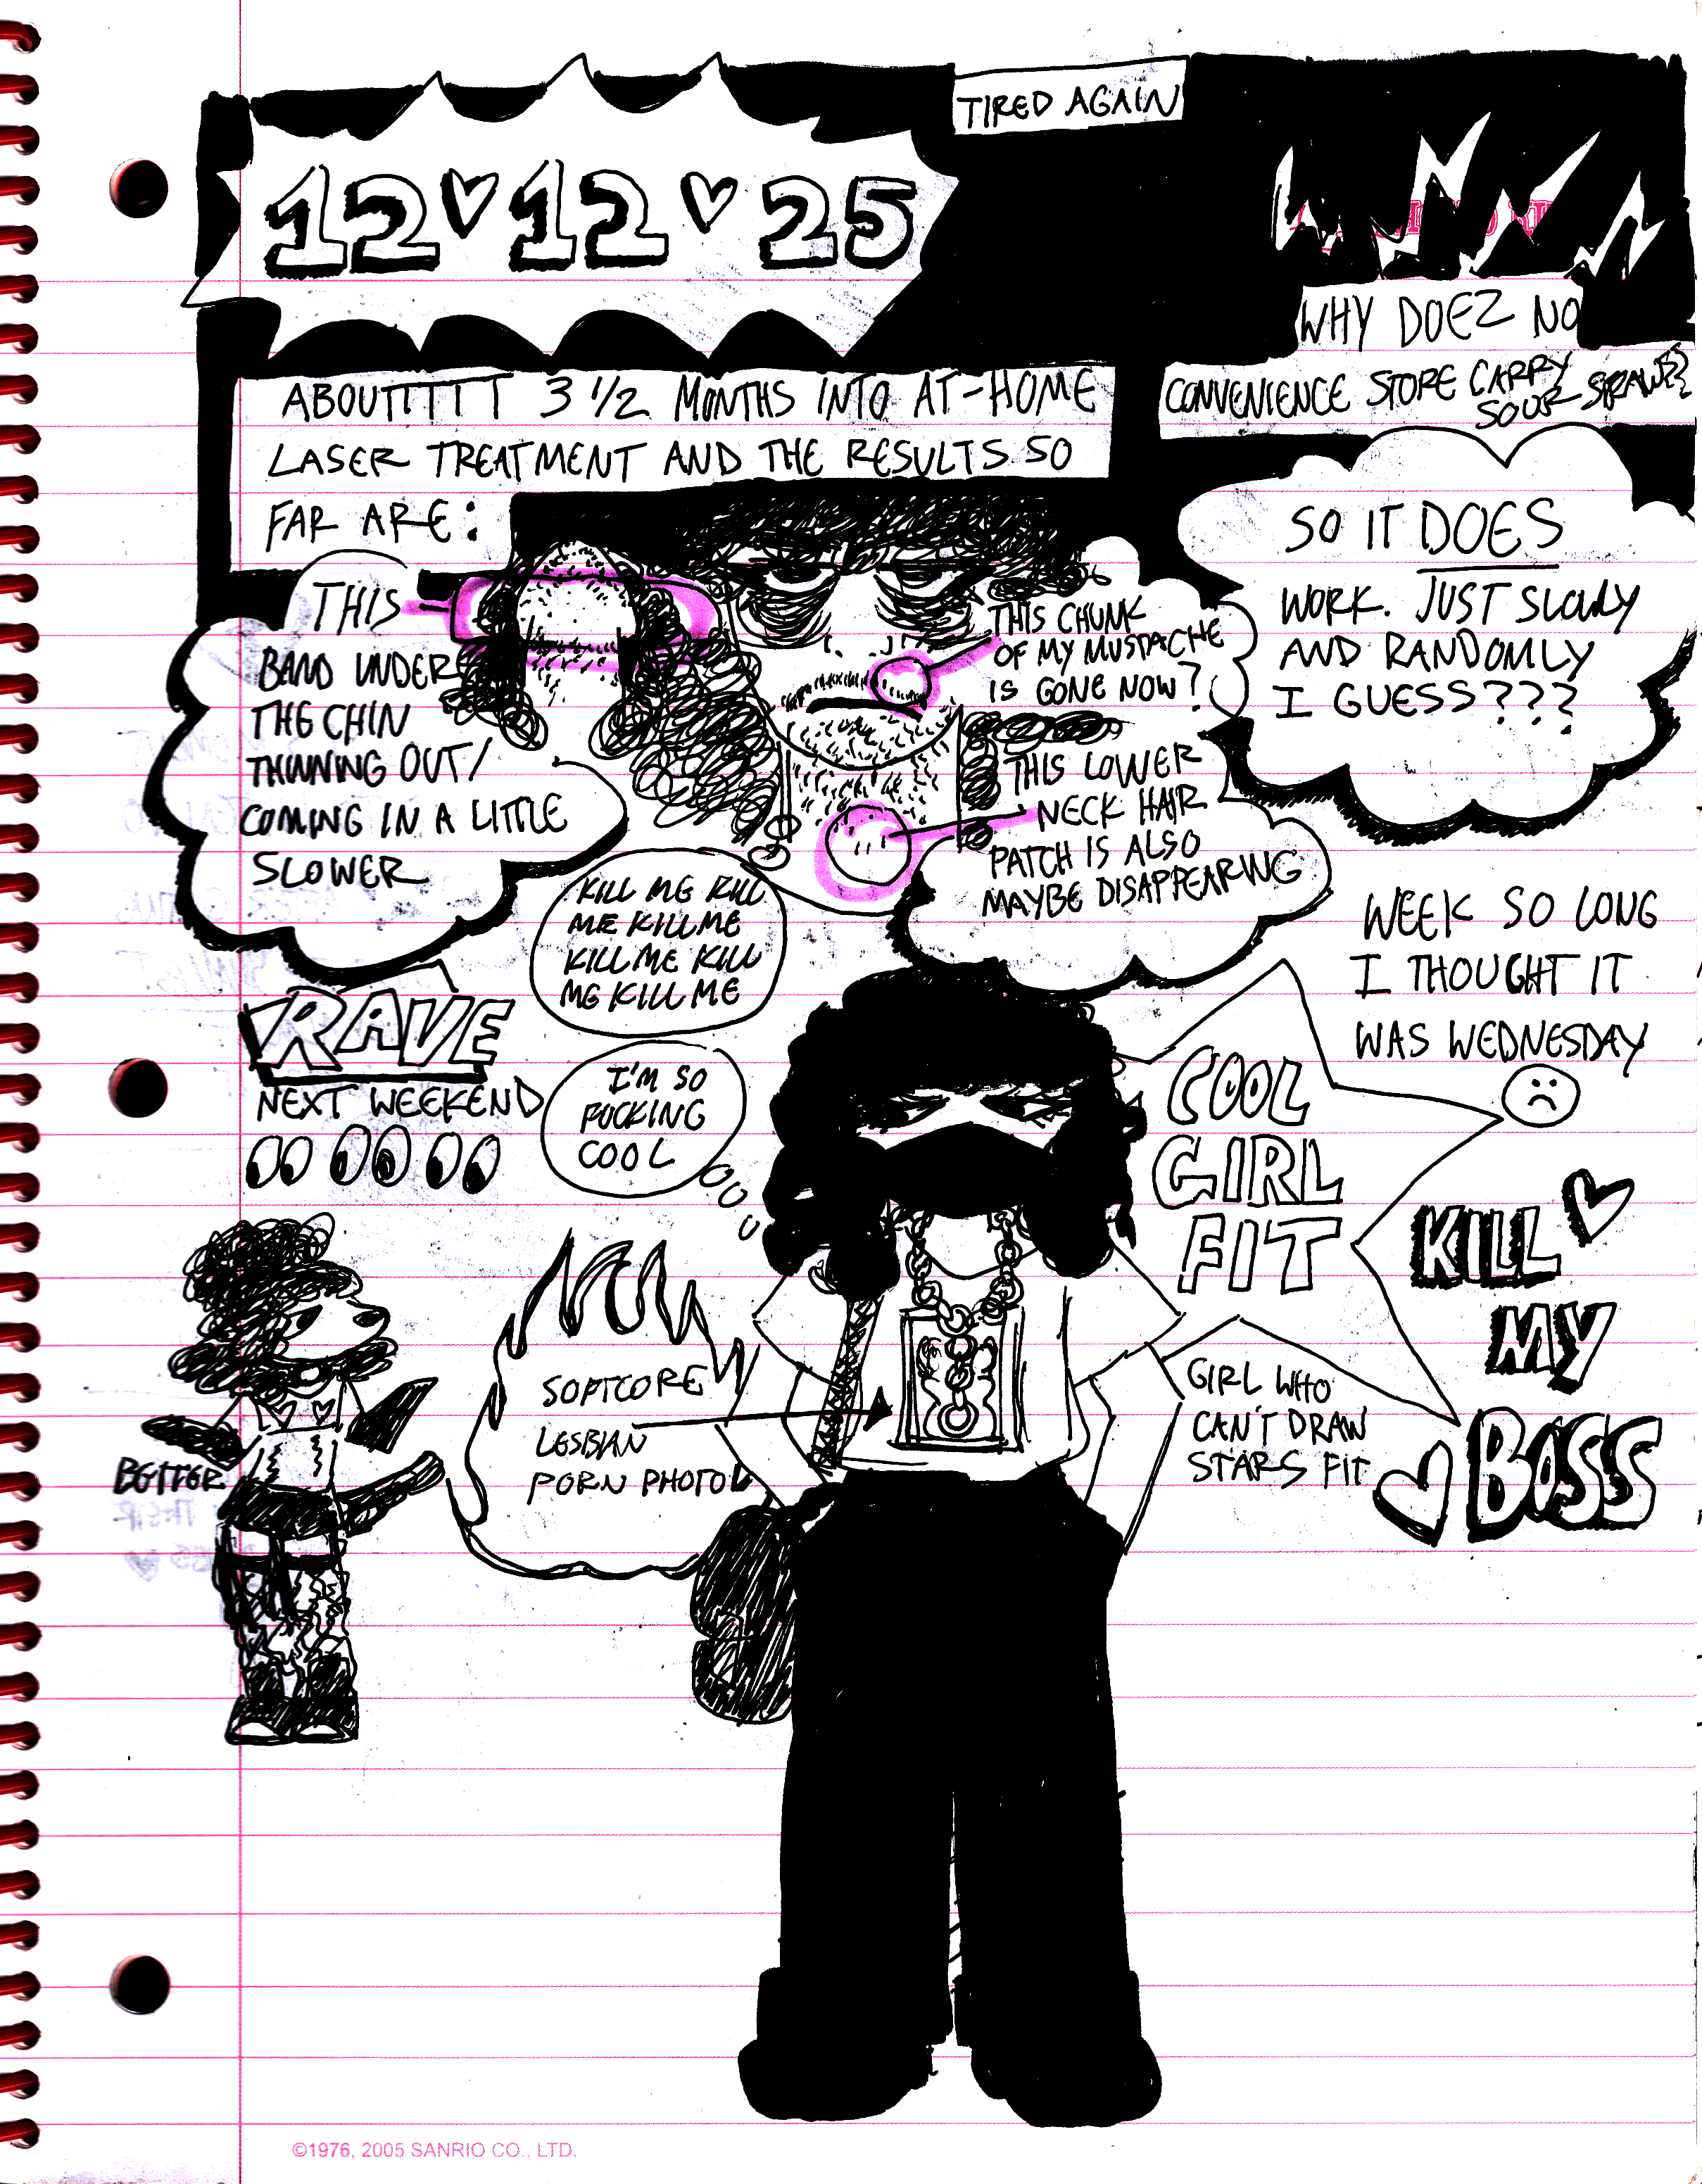 TIRED AGAIN
12♡12♡25
WHY DOEZ NO
CONVENIENCE STORE CARRY
SOUR STRAWZ??
ABOUTTTTT 3 1/2 MONTHS INTO AT-HOME
LASER TREATMENT AND THE RESULTS SO
FAR ARE:
THIS
BAND UNDER
THE CHIN
THINNING OUT/
COMING IN A LITTLE
SLOWER
THIS CHUNK
OF MY MUSTACHE
IS GONE NOW?
THIS LOWER
NECK HAIR
PATCH IS ALSO
MAYBE DISAPPEARING
SO IT DOES
WORK. JUST SLOWLY
AND RANDOMLY
I GUESS???
KILL ME KILL
ME KILL ME
KILL ME KILL
ME KILL ME
WEEK SO LONG
I THOUGHT IT
WAS WEDNESDAY
RAVE
NEXT WEEKEND
I'M SO
FUCKING
COOL
COOL
GIRL
FIT
KILL
MY
BOSS
SOFTCORE
LESBIAN
PORN PHOTO
GIRL WHO
CAN'T DRAW
STARS FIT
BETTER
©1976, 2005 SANRIO CO., LTD.